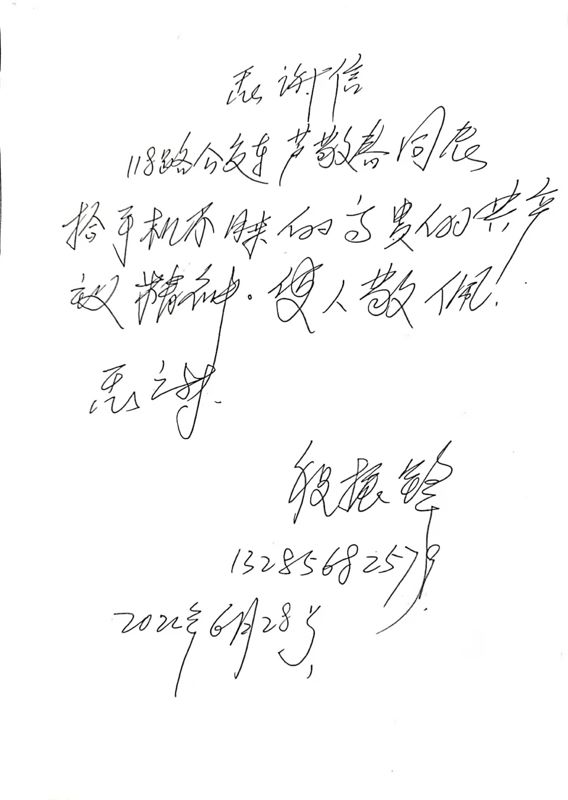 感谢信
118路公交车芦敬春同志
拾手机不昧的高贵的共产
主义精神。使人敬佩.
感谢.
段振锋
13285682579
2022年6月28号